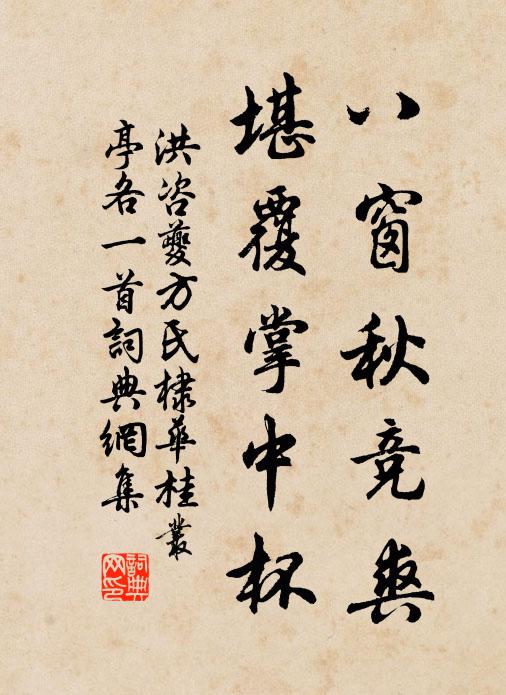 八窗秋竞爽
堪覆掌中杯
洪咨夔方氏棣華桂叢
亭各一首詞典網集
詞典网印